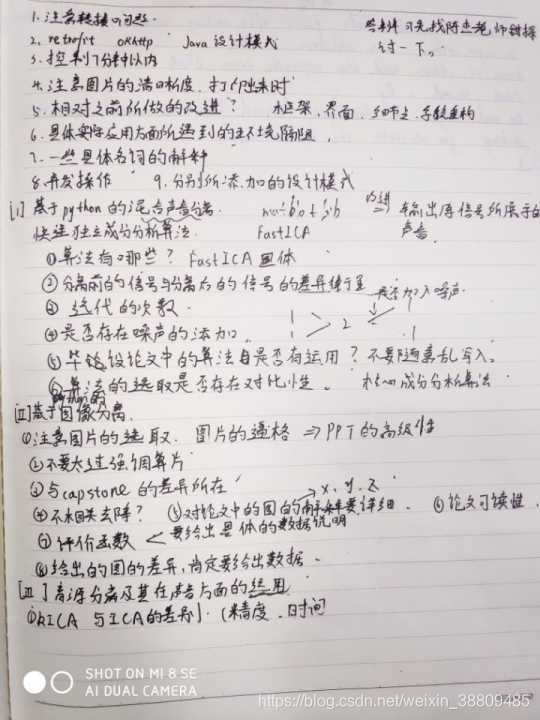 1. 注意转接口问题.
答辩 可先找陈杰老师
讨一下。
2. retrofit okhttp Java 设计模式
3. 控制7分钟以内
4. 注意图片的清晰度, 打印出来时
5. 相对之前所做的改进? 框架, 界面, 细节上, 手段重构
6. 具体实际应用方面所遇到的环境隔阻.
7. 一些具体名词的解释
8. 并发操作 9. 分别所添加的设计模式
[I] 基于python的混合声音分离 改进 输出原信号所展示的
快速独立成分分析算法. FastICA 声音.
①算法有哪些? FastICA 具体
②分离前的信号与分离后的信号的差异 是否加入噪声.
③ 迭代的次数.
④是否存在噪声的添加. 1 > 2 .1
⑤毕设论文中的算法自是否有运用? 不要随意乱写入.
⑥算法的选取是否存在对比性. 核心成分分析算法
[II] 基于图像分离.
①注意图片的选取. 图片的通格 ⇒ PPT的高级性
②不要太过强调算片
③与capstone的差异所在 x. y. z
④不相关去除? ⑤对论文中的图的解释要详细. ⑥论文可读性.
⑦评价函数 < 要给出具体的数据说明
⑧给出的图的差异, 肯定要给出数据.
[III] 盲源分离及其在声音方面的运用
①RICA 与ICA的差别. (精度. 时间
SHOT ON MI 8 SE
AI DUAL CAMERA
https://blog.csdn.net/weixin_38809485